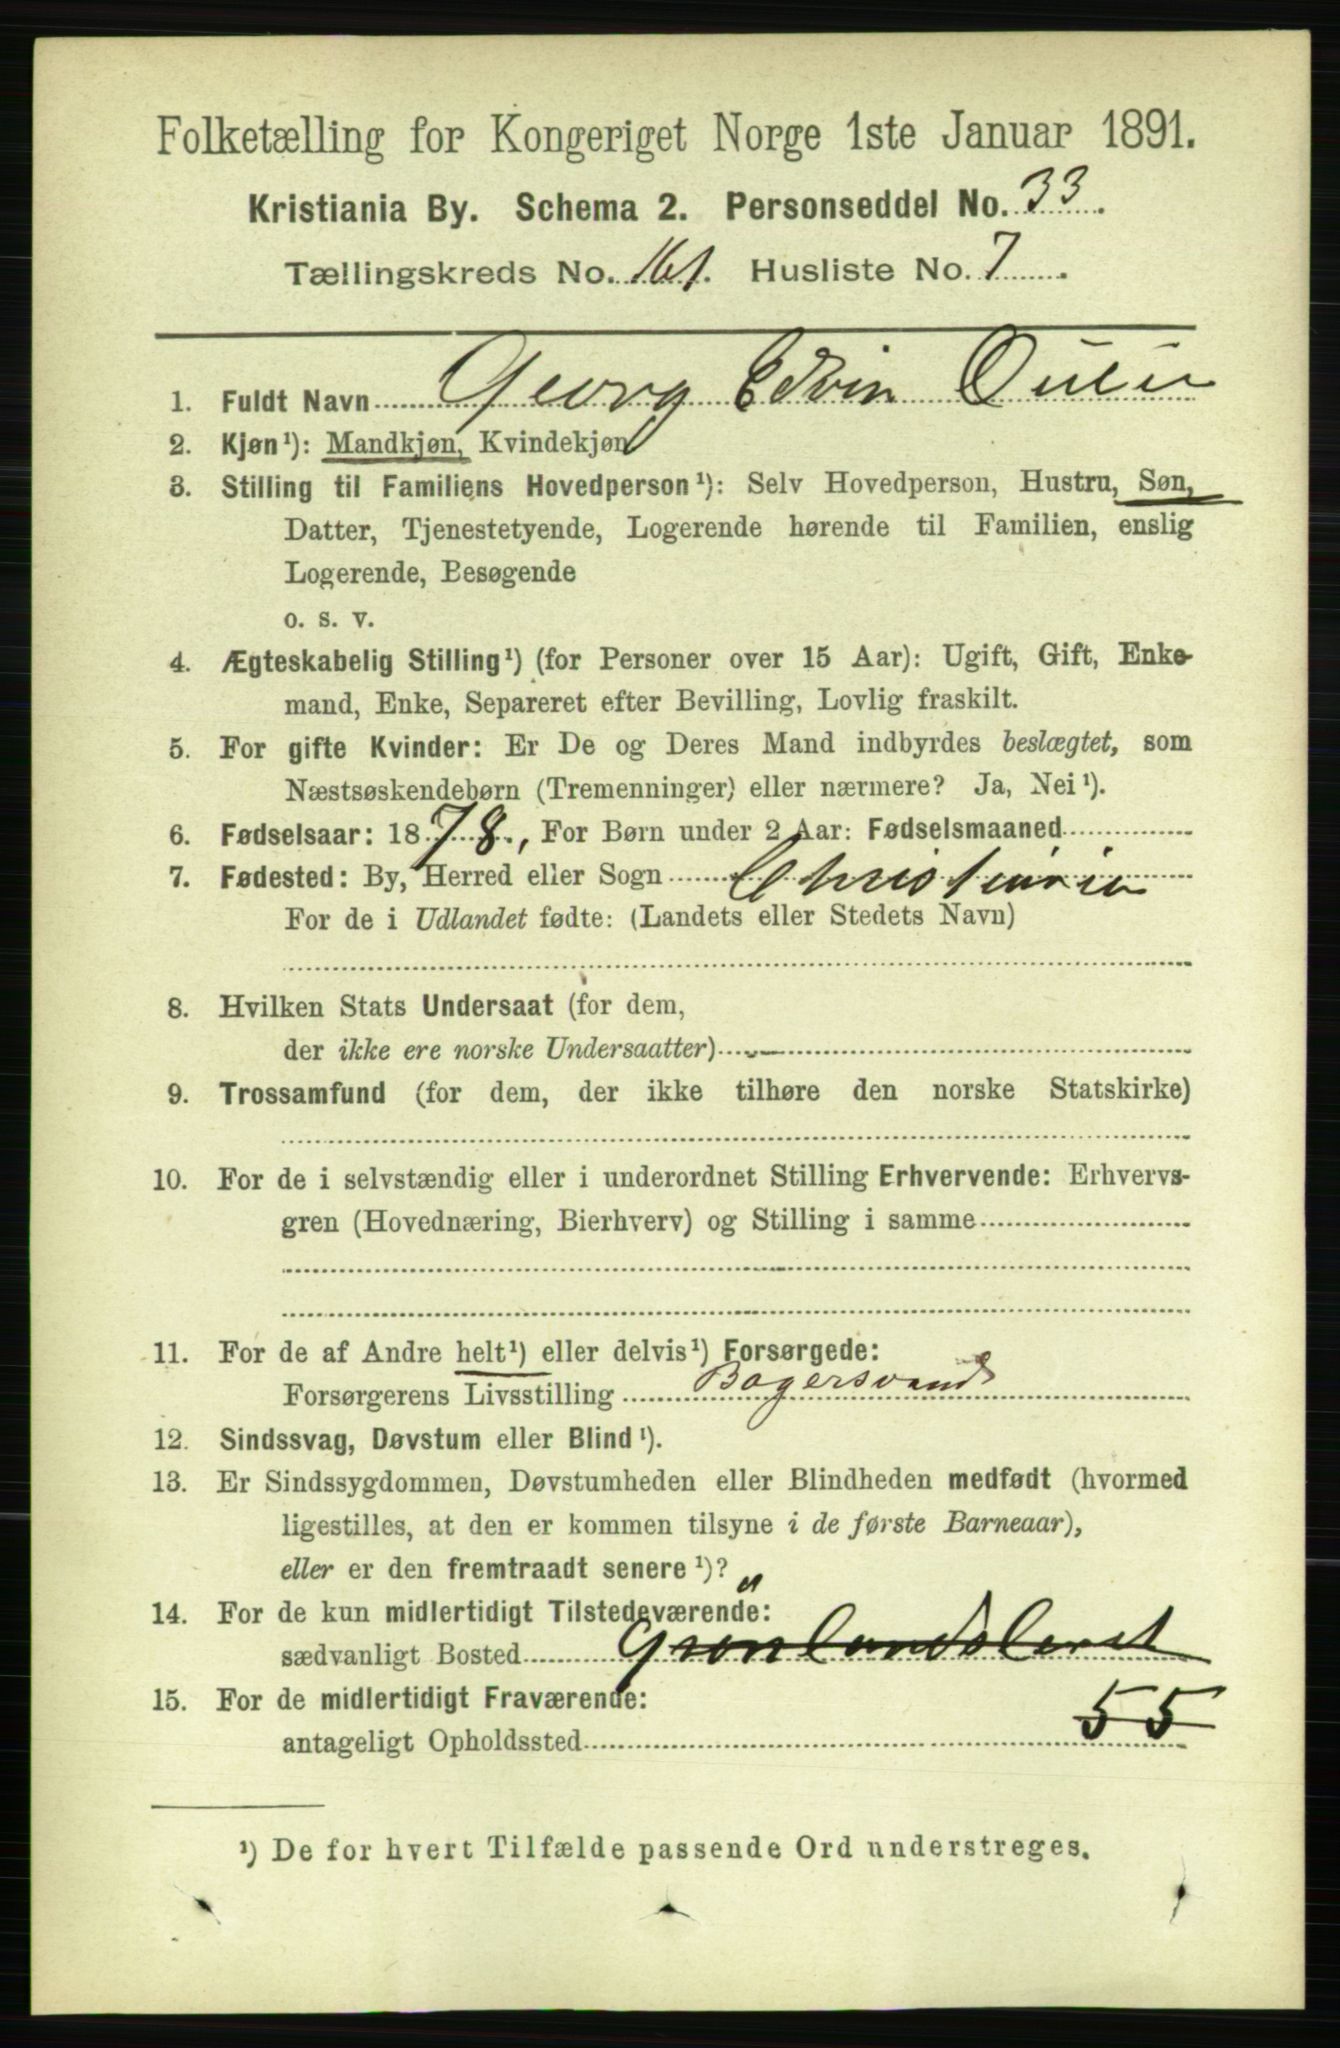 Folketælling for Kongeriget Norge 1ste Januar 1891.
Kristiania By. Schema 2. Personseddel No. 33.
Tællingskreds No. 161. Husliste No. 7.
1. Fuldt Navn Georg Edvin
2. Kjøn¹): Mandkjøn, Kvindekjøn
3. Stilling til Familiens Hovedperson¹): Selv Hovedperson, Hustru, Søn,
Datter, Tjenestetyende, Logerende hørende til Familien, enslig
Logerende, Besøgende
o. s. v.
4. Ægteskabelig Stilling¹) (for Personer over 15 Aar): Ugift, Gift, Enke-
mand, Enke, Separeret efter Bevilling, Lovlig fraskilt.
5. For gifte Kvinder: Er De og Deres Mand indbyrdes beslægtet, som
Næstsøskendebørn (Tremenninger) eller nærmere? Ja, Nei¹).
6. Fødselsaar: 1878, For Børn under 2 Aar: Fødselsmaaned
7. Fødested: By, Herred eller Sogn Christiania
For de i Udlandet fødte: (Landets eller Stedets Navn)
8. Hvilken Stats Undersaat (for dem,
der ikke ere norske Undersaatter)
9. Trossamfund (for dem, der ikke tilhøre den norske Statskirke)
10. For de i selvstændig eller i underordnet Stilling Erhvervende: Erhvervs-
gren (Hovednæring, Bierhverv) og Stilling i samme
11. For de af Andre helt¹) eller delvis¹) Forsørgede:
Forsørgerens Livsstilling Bagersvend
12. Sindssvag, Døvstum eller Blind¹).
13. Er Sindssygdommen, Døvstumheden eller Blindheden medfødt (hvormed
ligestilles, at den er kommen tilsyne i de første Barneaar),
eller er den fremtraadt senere¹)? "
14. For de kun midlertidigt Tilstedeværende:
sædvanligt Bosted Grønlandsleret
15. For de midlertidigt Fraværende: 55
antageligt Opholdssted
¹) De for hvert Tilfælde passende Ord understreges.